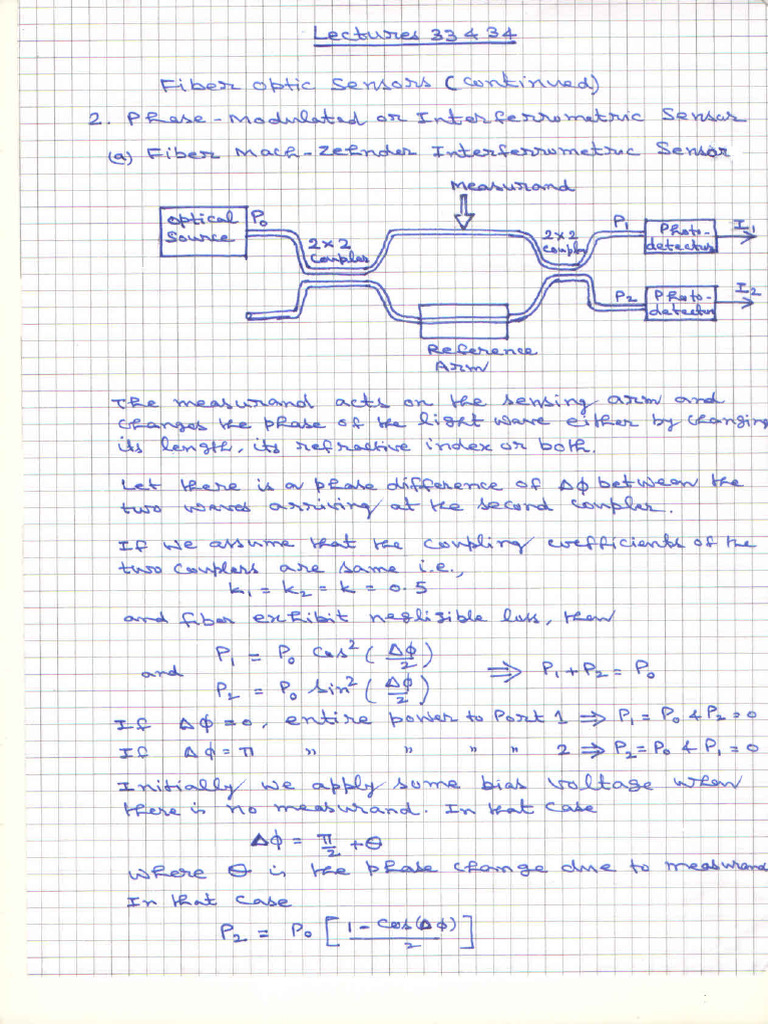 Lectures 33 & 34
Fiber Optic Sensors (continued)
2. Phase-Modulated or Interferrometric Sensor
(a) Fiber Mach-Zehnder Interferrometric Sensor
Measurand
Optical Source
P₀
2x2 Coupler
2x2 Coupler
P₁
Photo-detector
I₁
P₂
Photo-detector
I₂
Reference Arm
The measurand acts on the sensing arm and
changes the phase of the light wave either by changing
its length, its refractive index or both.
Let there is a phase difference of Δφ between the
two waves arriving at the second coupler.
If we assume that the coupling coefficients of the
two couplers are same i.e.,
k₁ = k₂ = k = 0.5
and fiber exhibit negligible loss, then
P₁ = P₀ cos² (Δφ/2)
and ⇒ P₁ + P₂ = P₀
P₂ = P₀ sin² (Δφ/2)
If Δφ = 0, entire power to Port 1 ⇒ P₁ = P₀ & P₂ = 0
If Δφ = π " " " " 2 ⇒ P₂ = P₀ & P₁ = 0
Initially we apply some bias voltage when
there is no measurand. In that case
Δφ = π/2 + θ
where θ is the phase change due to measurand
In that case
P₂ = P₀ [(1 - cos(Δφ))/2]